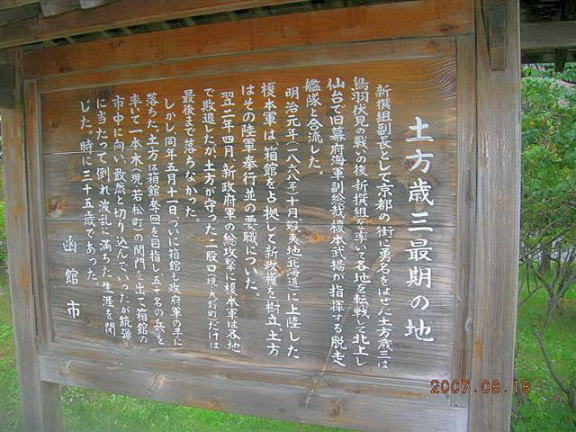 土方歳三最期の地
新撰組副長として京都の街に勇名をはせた土方歳三は
鳥羽伏見の戦いの後新撰組を率いて各地を転戦して北上し
仙台で旧幕府海軍副総裁榎本武揚が指揮する脱走
艦隊と合流した。
明治元年(一八六八年)十月蝦夷地(北海道)に上陸した
榎本軍は、箱館を占拠して新政権を樹立、土方
はその陸軍奉行並の要職についた。
翌二年四月、新政府軍の総攻撃に榎本軍は各地
で敗退したが、土方が守った二股口(現大野町)だけは
最後まで落ちなかった。
しかし同年五月十一日、ついに箱館も政府軍の手に
落ちた。土方は箱館奪回を目指し、五十名の兵を
率いて一本木(現若松町)の関門を出て箱館の
市中に向い、敢然と切り込んでいったが銃弾
に当たって倒れ、波乱に満ちた生涯を閉
じた。時に三十五歳であった。
函館市
2007.08.18